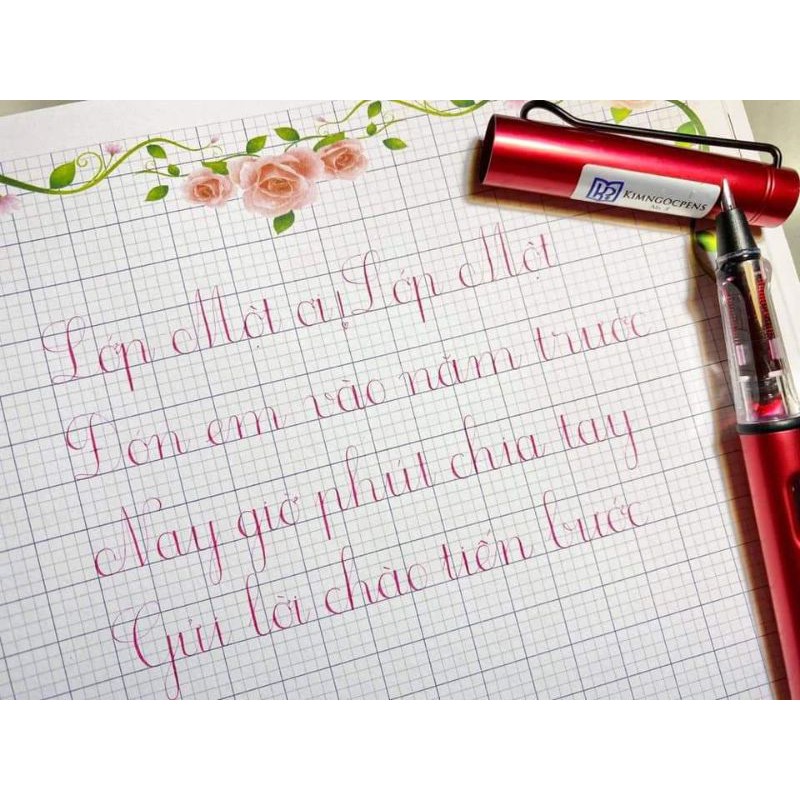 Lớp Một ơi, Lớp Một
Đón em vào năm trước
Nay giờ phút chia tay
Gửi lời chào tiến bước
KIMNGOCPENS